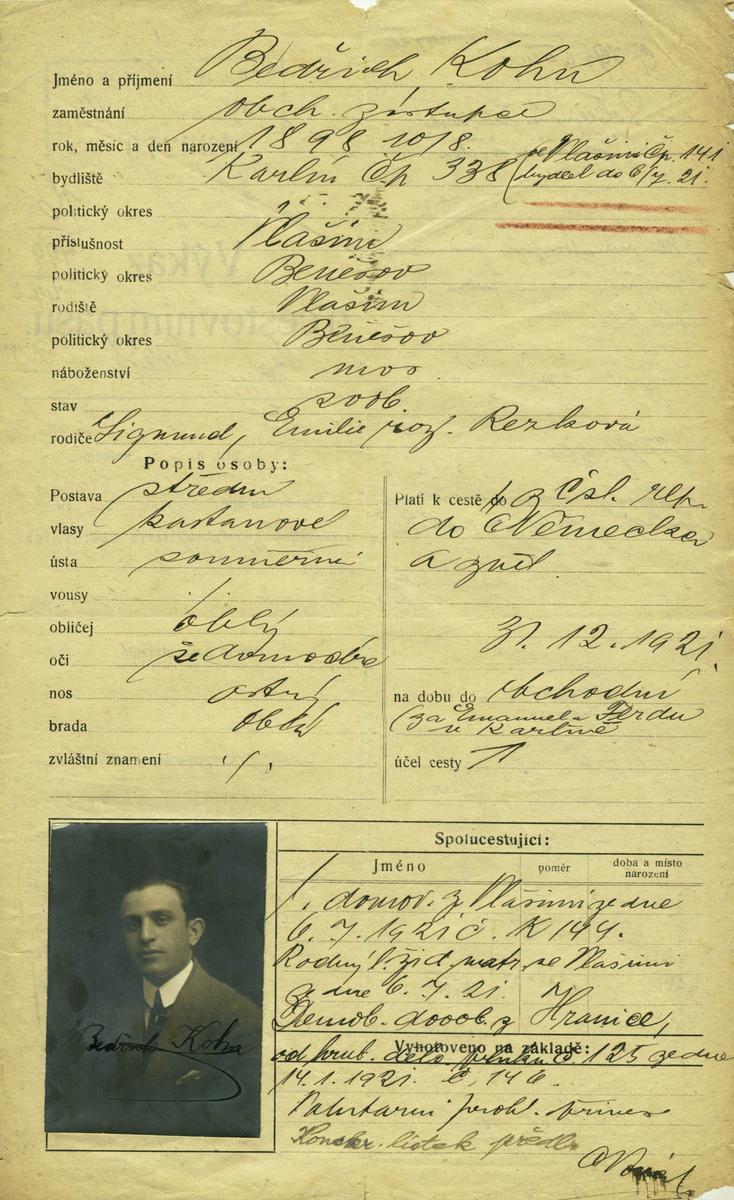 Jméno a příjmení Bedřich Kohn
zaměstnání obch. zástupce
rok, měsíc a den narození 1898 10/8.
bydliště Karlín Čp 338 (ve Vlašimi čp. 141
bydlel do 6/7. 21.
politický okres
příslušnost Vlašim
politický okres Benešov
rodiště Vlašim
politický okres Benešov
náboženství mos.
stav svob.
rodiče Sigmund, Emilie roz. Rezková
Popis osoby:
Postava střední
vlasy kaštanové
ústa souměrná
vousy /.
obličej oblý
oči šedomodré
nos ostrý
brada oblá
zvláštní znamení ./.
Platí k cestě do z Čsl. rep.
do Německa
a zpět
31. 12. 1921.
na dobu do obchodní
(za Emanuela Ferdu
v Karlíně
účel cesty
Spolucestující:
Jméno poměr doba a místo narození
/. domov. z Vlašimi ze dne
6. 7. 1921 č. K 144.
Rodný l. žid. matr. ve Vlašimi
ze dne 6. 7. 21.
Demob. z Hranice,
Vyhotoveno na základě:
od hrub. děl. pluku č. 125 ze dne
14. 1. 1921. č. 146.
prohl.
Konskr. lístek předl.
Bedřich Kohn